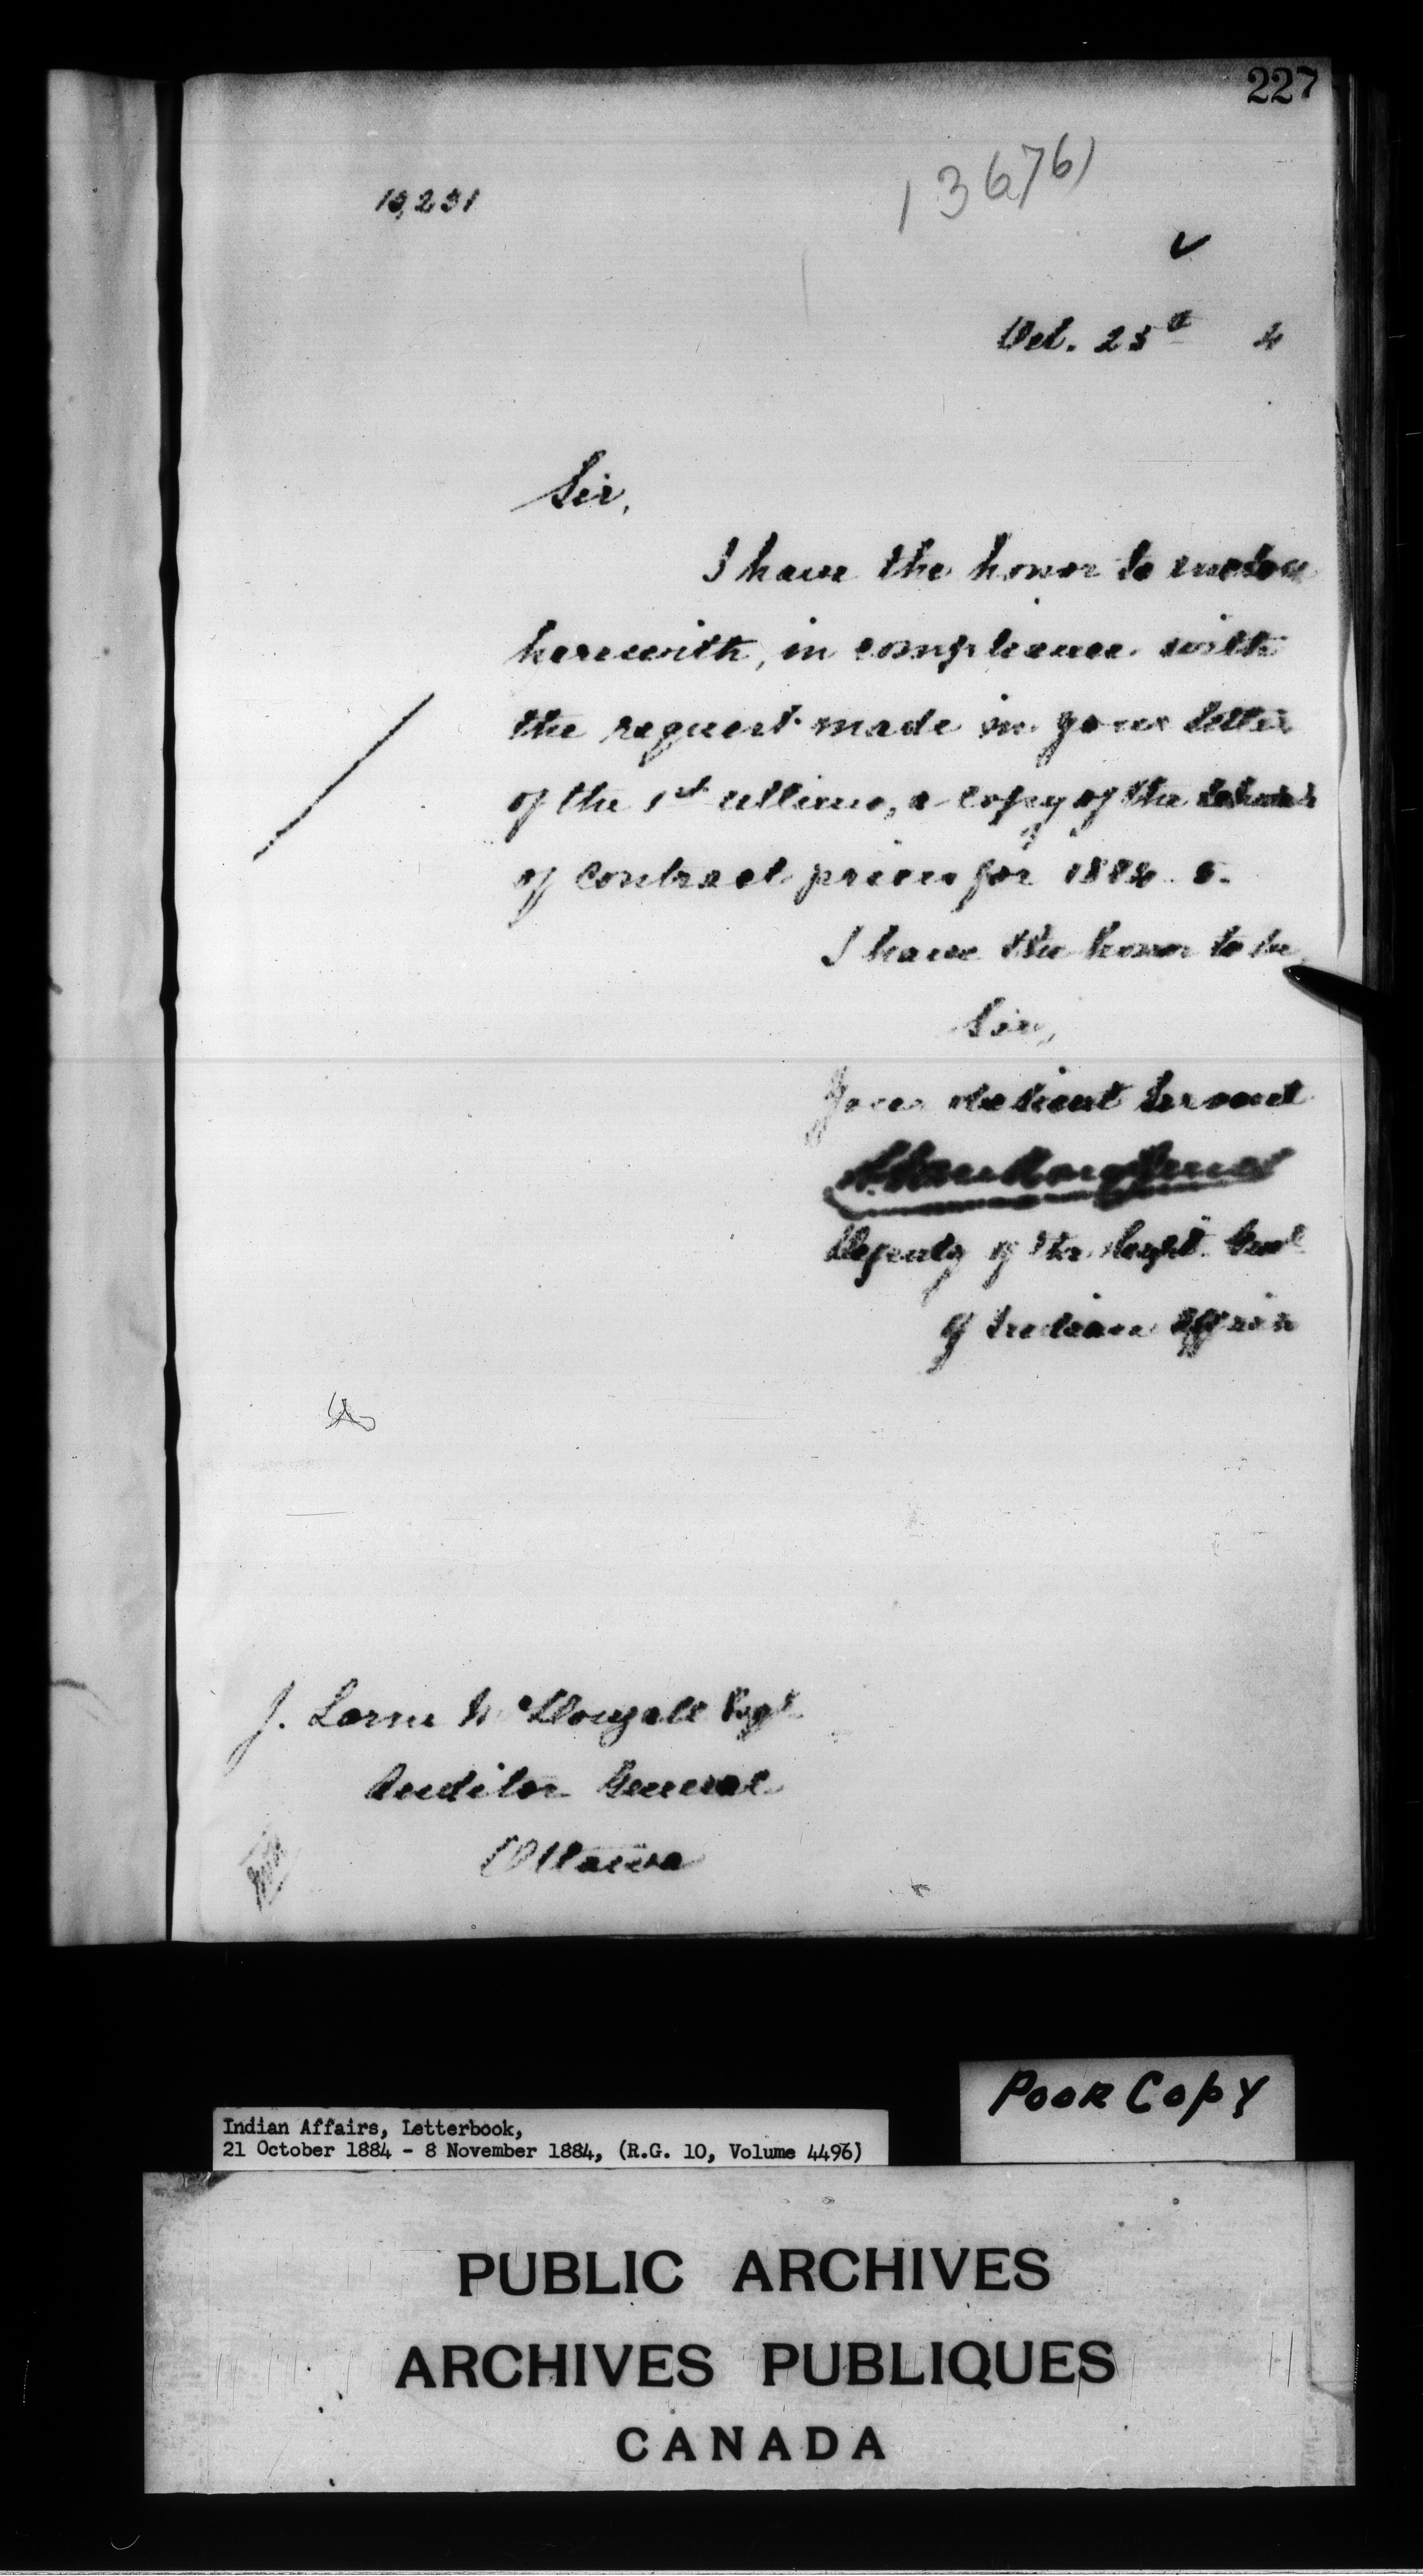 227
13676)
13,231
Oct. 25th 4
Sir,
I have the honor to enclose
herewith, in compliance with
the request made in your letter
of the 1st ultimo, a copy of the schedule
of contract prices for 1884. 5.
I have the honor to be
Sir,
Your obedient Servant
L. VanKoughnet
Deputy of the Supt. Genl
of Indian Affairs
J. Lorne McDougall Esqr
Auditor General
Ottawa
POOR COPY
Indian Affairs, Letterbook,
21 October 1884 - 8 November 1884, (R.G. 10, Volume 4496)
PUBLIC ARCHIVES
ARCHIVES PUBLIQUES
CANADA